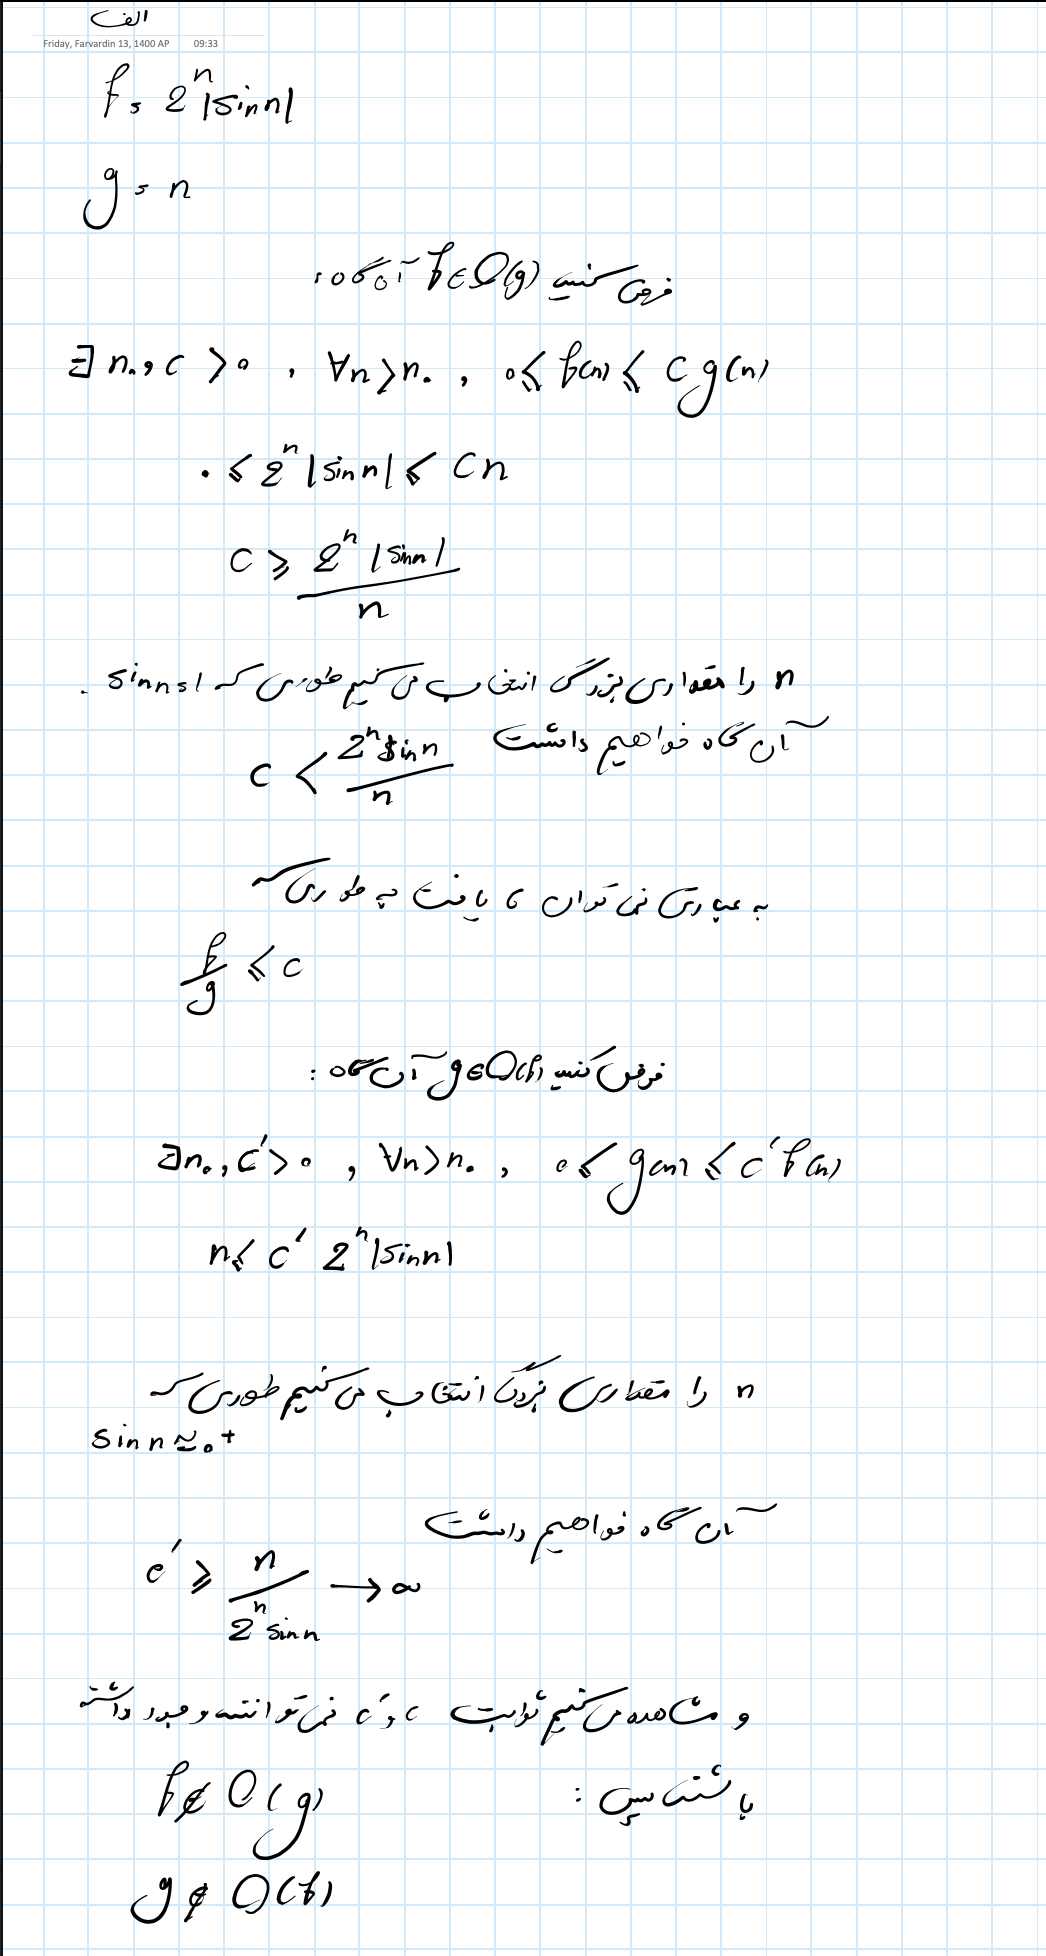 الف
Friday, Farvardin 13, 1400 AP 09:33
f = 2^n |sin n|
g = n
فرض کنید f ∈ O(g) آن گاه :
∃ n₀, c > 0 , ∀n > n₀ , 0 ≤ f(n) ≤ c g(n)
0 ≤ 2^n |sin n| ≤ cn
c ≥ 2^n |sin n| / n
n را مقداری بزرگ انتخاب می کنیم طوری که sin n = 1 .
آن گاه خواهیم داشت c < 2^n sin n / n
به عبارتی نمی توان c یافت به طوری که
f/g ≤ c
فرض کنید g ∈ O(f) آن گاه :
∃ n₀, c' > 0 , ∀n > n₀ , 0 ≤ g(n) ≤ c' f(n)
n ≤ c' 2^n |sin n|
n را مقداری بزرگ انتخاب می کنیم طوری که
sin n ≈ 0⁺
آن گاه خواهیم داشت
c' ≥ n / 2^n sin n → ∞
و مشاهده می کنیم ثوابت c و c' نمی توانند وجود داشته
باشند پس :
f ∉ O(g)
g ∉ O(f)